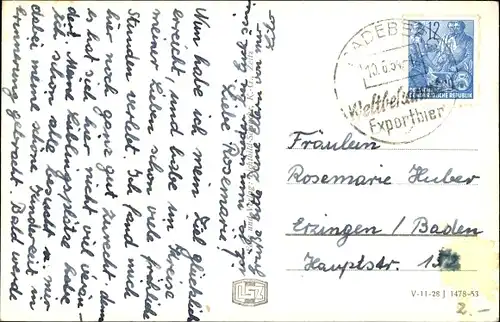 Liebe Rosemarie!
Nun habe ich mein Ziel glücklich
erreicht, und habe im Kreise
meiner Lieben schon viele fröhliche
Stunden verlebt. Ich fand mich
hier noch ganz gut zurecht, denn
es hat sich hier nicht viel verän-
dert. Meine Lieblingsplätze habe
ich schon alle besucht u. mir
dabei meine schöne Kinderzeit in
Erinnerung gebracht. Bald werde
Grüße bitte Deine Eltern von mir
RADEBE
10.6.5
Weltbekannt
Exportbier
12
DEUTSCHE DEMOKRATISCHE REPUBLIK
Fräulein
Rosemarie Huber
Erzingen / Baden
Hauptstr.
V-11-28 J 1478-53
2.-